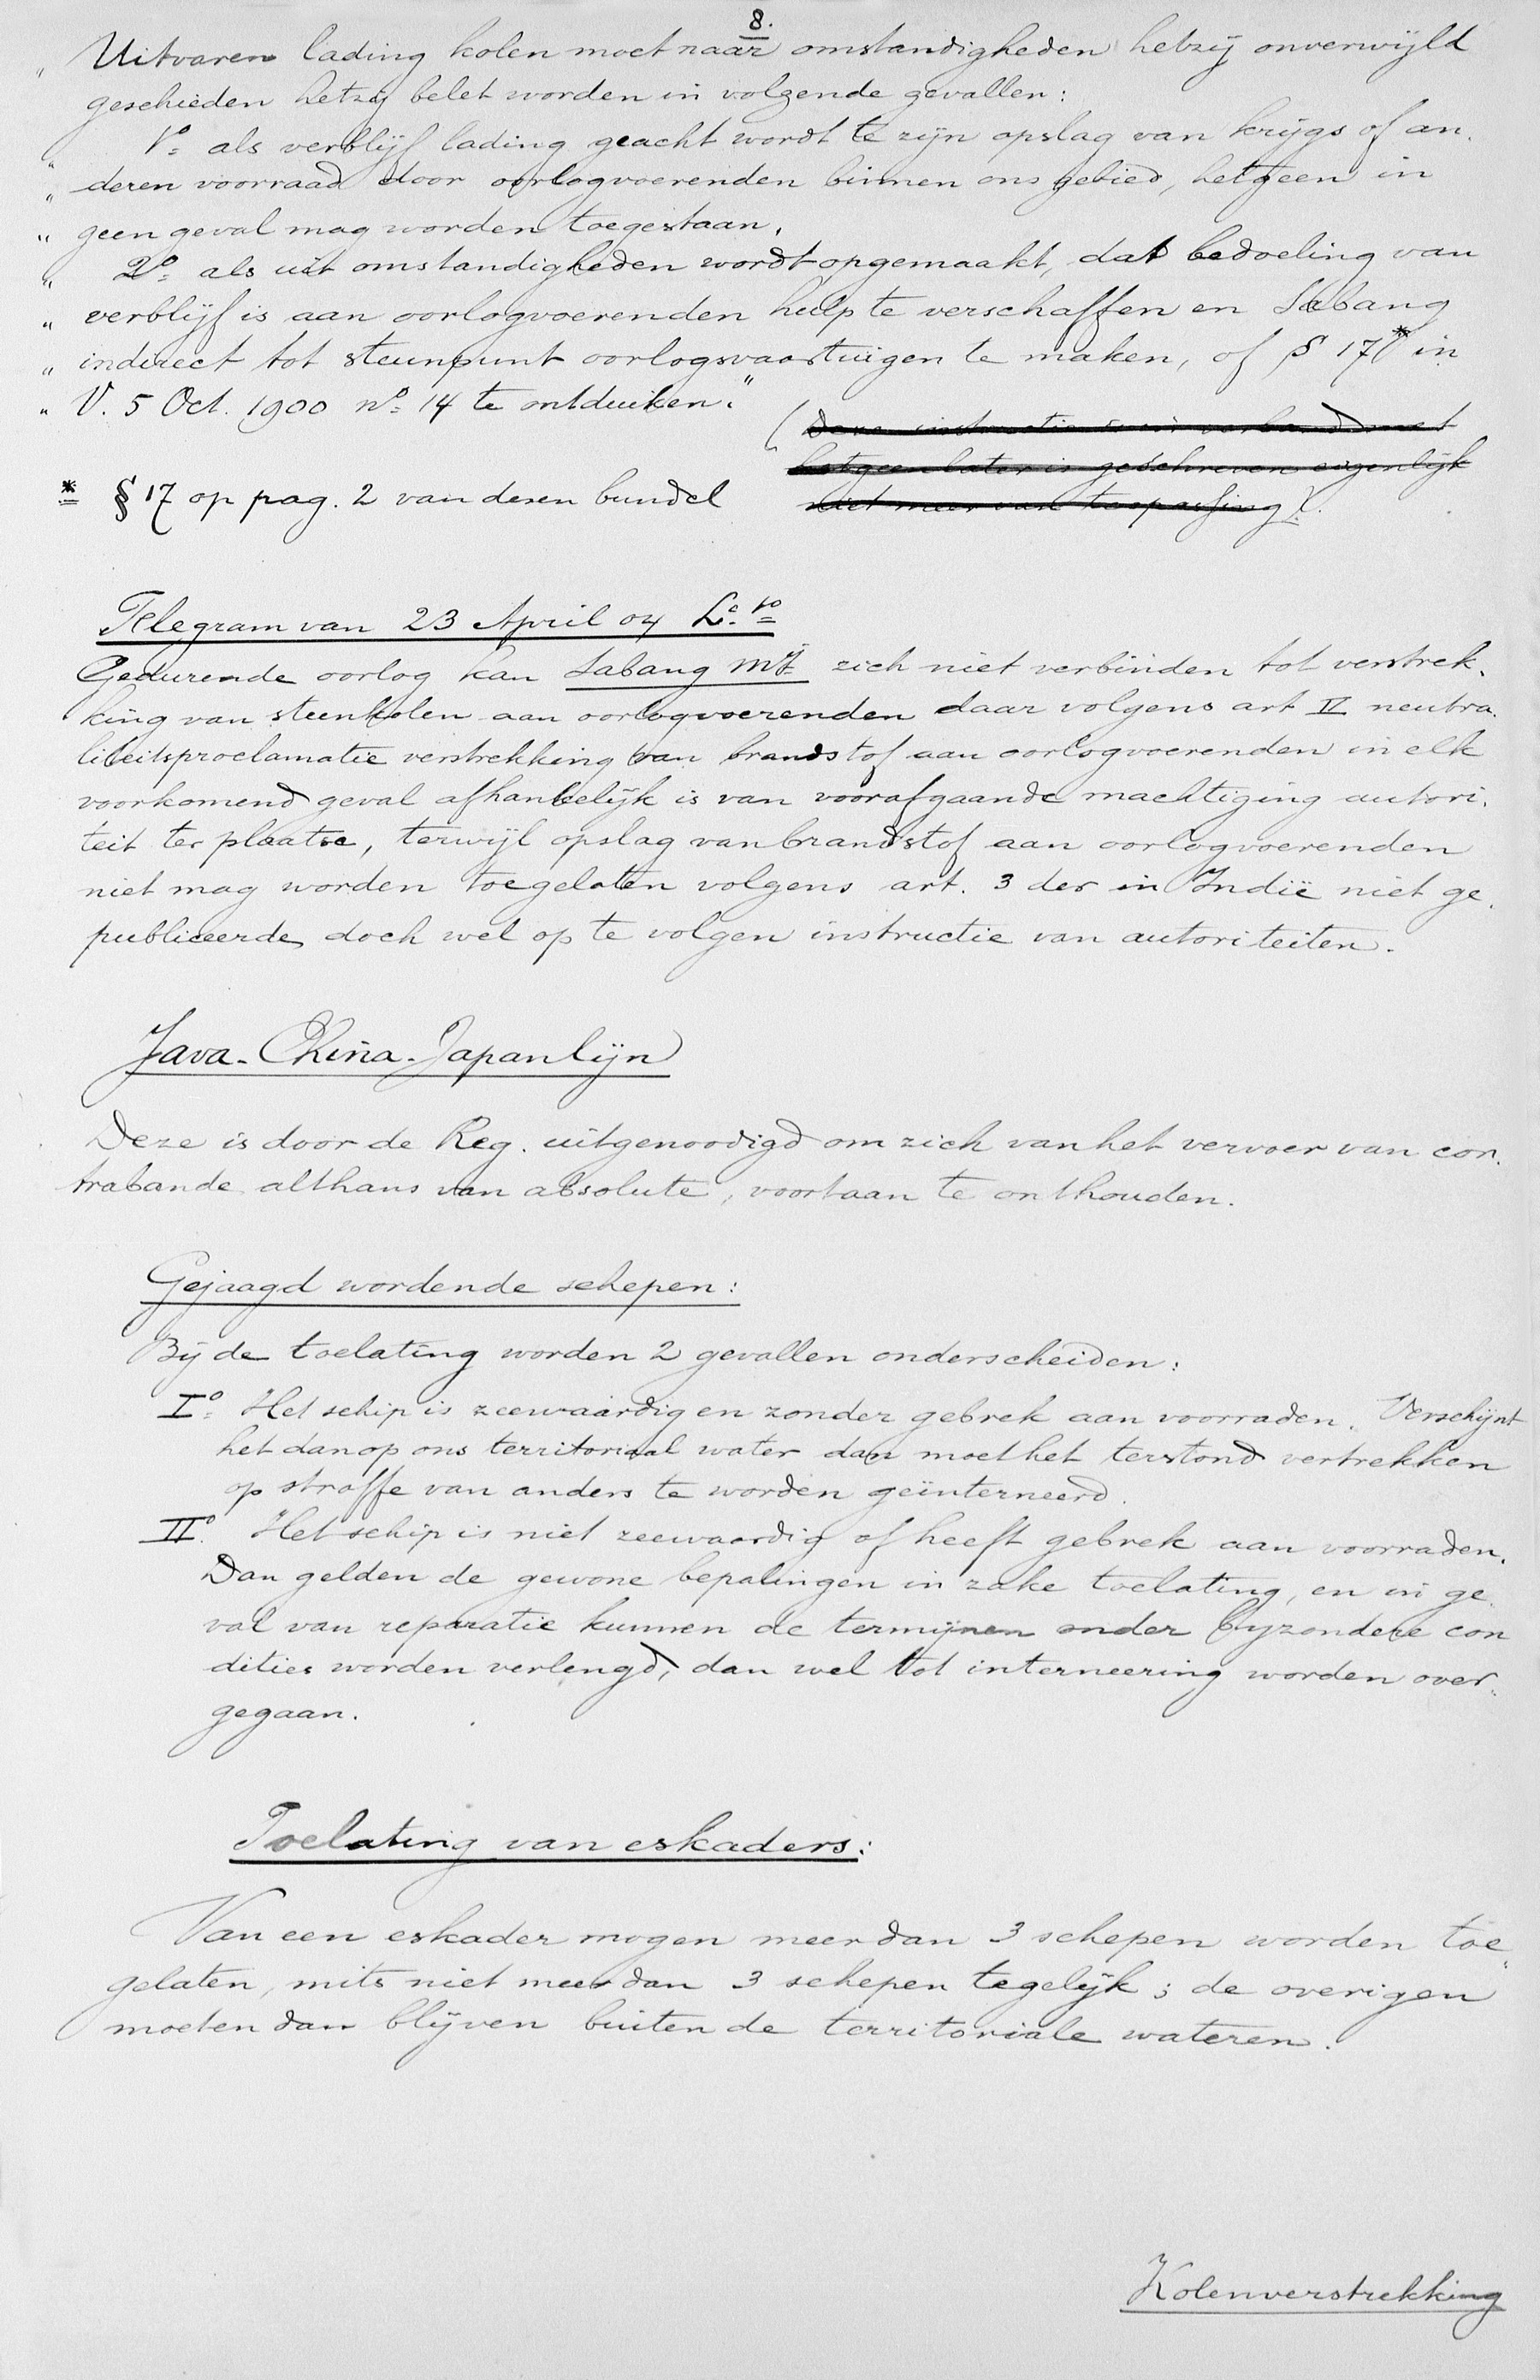 8.
„ Uitvaren lading kolen moet naar omstandigheden hetzij onverwijld
geschieden hetzij belet worden in volgende gevallen:
„ 1º als verblijf lading geacht wordt te zijn opslag van krijgs of an-
„ deren voorraad door oorlogvoerenden binnen ons gebied, hetgeen in
„ geen geval mag worden toegestaan.
„ 2º als uit omstandigheden wordt opgemaakt, dat bedoeling van
„ verblijf is aan oorlogvoerenden hulp te verschaffen en Sabang
„ indirect tot steunpunt oorlogsvaartuigen te maken, of § 17 * in
„ V. 5 Oct. 1900 nº 14 te ontduiken."
(Deze instructie is in verband met
hetgeen later is geschreven eigenlijk
niet meer van toepassing).
* § 17 op pag. 2 van dezen bundel
Telegram van 23 April 04
Gedurende oorlog kan Sabang Mij zich niet verbinden tot verstrek-
king van steenkolen aan oorlogvoerenden daar volgens art IV neutra-
liteitsproclamatie verstrekking van brandstof aan oorlogvoerenden in elk
voorkomend geval afhankelijk is van voorafgaande machtiging autori-
teit ter plaatse, terwijl opslag van brandstof aan oorlogvoerenden
niet mag worden toegelaten volgens art. 3 der in Indië niet ge-
publiceerde doch wel op te volgen instructie van autoriteiten.
Java-China-Japanlijn
Deze is door de Reg. uitgenoodigd om zich van het vervoer van con-
trabande althans van absolute, voortaan te onthouden.
Gejaagd wordende schepen:
Bij de toelating worden 2 gevallen onderscheiden:
Iº Het schip is zeewaardig en zonder gebrek aan voorraden. Verschijnt
het dan op ons territoriaal water dan moet het terstond vertrekken
op straffe van anders te worden geïnterneerd.
IIº. Het schip is niet zeewaardig of heeft gebrek aan voorraden.
Dan gelden de gewone bepalingen in zake toelating, en in ge-
val van reparatie kunnen de termijnen onder bijzondere con
dities worden verlengd, dan wel tot interneering worden over-
gegaan.
Toelating van eskaders:
Van een eskader mogen meer dan 3 schepen worden toe-
gelaten, mits niet meer dan 3 schepen tegelijk; de overigen
moeten dan blijven buiten de territoriale wateren.
Kolenverstrekking